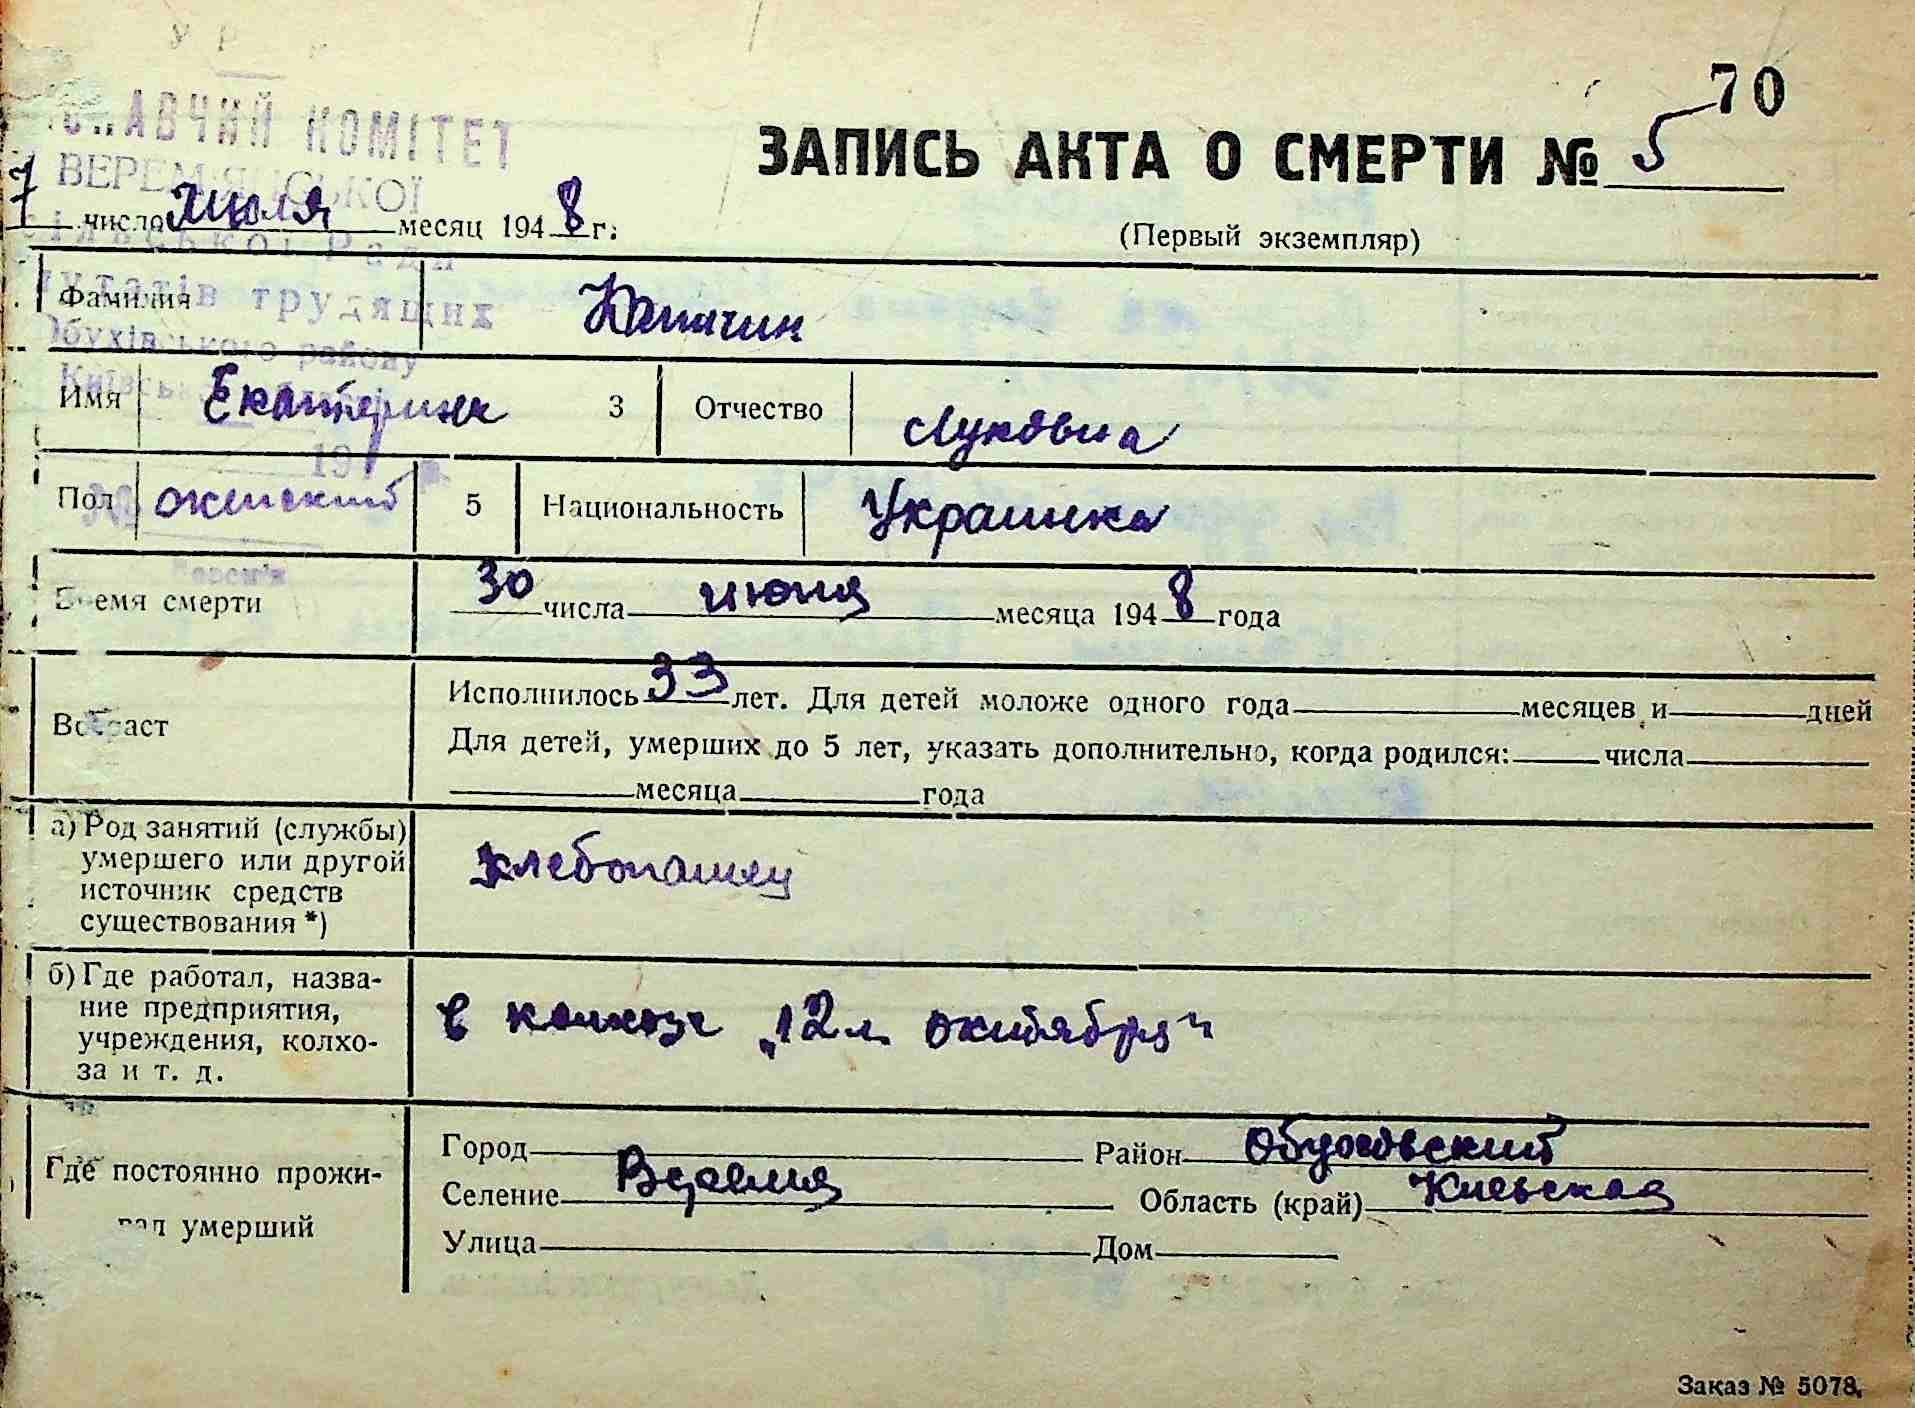 70
КОМІТЕТ
ЗАПИСЬ АКТА О СМЕРТИ № 5
7 число Июля месяц 1948 г.
(Первый экземпляр)
трудящих
району
Фамилия
Имя Екатерина 3 Отчество Луковна
Пол женский 5 Национальность Украинка
Время смерти 30 числа июня месяца 1948 года
Возраст
Исполнилось 33 лет. Для детей моложе одного года месяцев и дней
Для детей, умерших до 5 лет, указать дополнительно, когда родился: числа
месяца года
а) Род занятий (службы)
умершего или другой
источник средств
существования *)
хлебопашец
б) Где работал, назва-
ние предприятия,
учреждения, колхо-
за и т. д.
в колхозе „12 л. октября"
Где постоянно прожи-
вал умерший
Город Район Обуховский
Селение Веремя Область (край) Киевская
Улица Дом
Заказ № 5078.